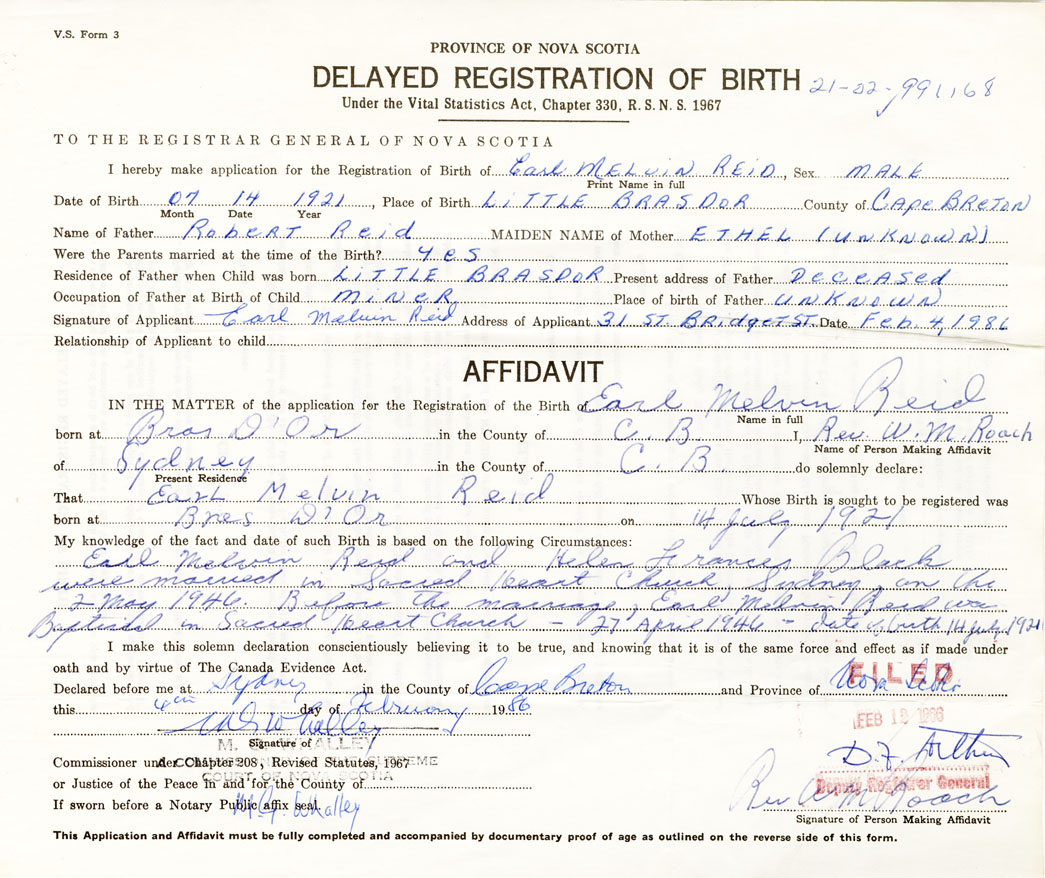 V.S. Form 3
PROVINCE OF NOVA SCOTIA
DELAYED REGISTRATION OF BIRTH 21-02-991168
Under the Vital Statistics Act, Chapter 330, R. S. N. S. 1967
TO THE REGISTRAR GENERAL OF NOVA SCOTIA
I hereby make application for the Registration of Birth of Earl MELVIN REID, Sex MALE
Print Name in full
Date of Birth 07 14 1921, Place of Birth LITTLE BRASDOR County of Cape BRETON
Month Date Year
Name of Father ROBERT Reid MAIDEN NAME of Mother ETHEL (UNKNOWN)
Were the Parents married at the time of the Birth? yes
Residence of Father when Child was born LITTLE BRASDOR Present address of Father DECEASED
Occupation of Father at Birth of Child MINER Place of birth of Father UNKNOWN
Signature of Applicant Earl Melvin Reid Address of Applicant 31 ST. BRIDGET ST. Date Feb. 4, 1986
Relationship of Applicant to child
AFFIDAVIT
IN THE MATTER of the application for the Registration of the Birth of Earl Melvin Reid
Name in full
born at Bras D'Or in the County of C. B I, Rev. W. M. Roach
Name of Person Making Affidavit
of Sydney in the County of C. B. do solemnly declare:
Present Residence
That Earl Melvin Reid Whose Birth is sought to be registered was
born at Bres D'Or on 14 July 1921
My knowledge of the fact and date of such Birth is based on the following Circumstances:
Earl Melvin Reid and Helen Frances Black
were married in Sacred Heart Church, Sydney, on the
2 May 1946. Before the marriage, Earl Melvin Reid was
Baptised in Sacred Heart Church – 27 April 1946 – date of birth 14 July 1921
I make this solemn declaration conscientiously believing it to be true, and knowing that it is of the same force and effect as if made under
oath and by virtue of The Canada Evidence Act.
FILED
Declared before me at Sydney in the County of Cape Breton and Province of Nova Scotia
this 4th day of February 1986
FEB 18 1986
Signature of
M. G. WHALLEY
Commissioner under Chapter 208, Revised Statutes, 1967
A COMMISSIONER OF THE SUPREME
COURT OF NOVA SCOTIA
or Justice of the Peace in and for the County of
Deputy Registrar General
If sworn before a Notary Public affix seal. M. G. Whalley
Rev W M Roach
Signature of Person Making Affidavit
This Application and Affidavit must be fully completed and accompanied by documentary proof of age as outlined on the reverse side of this form.